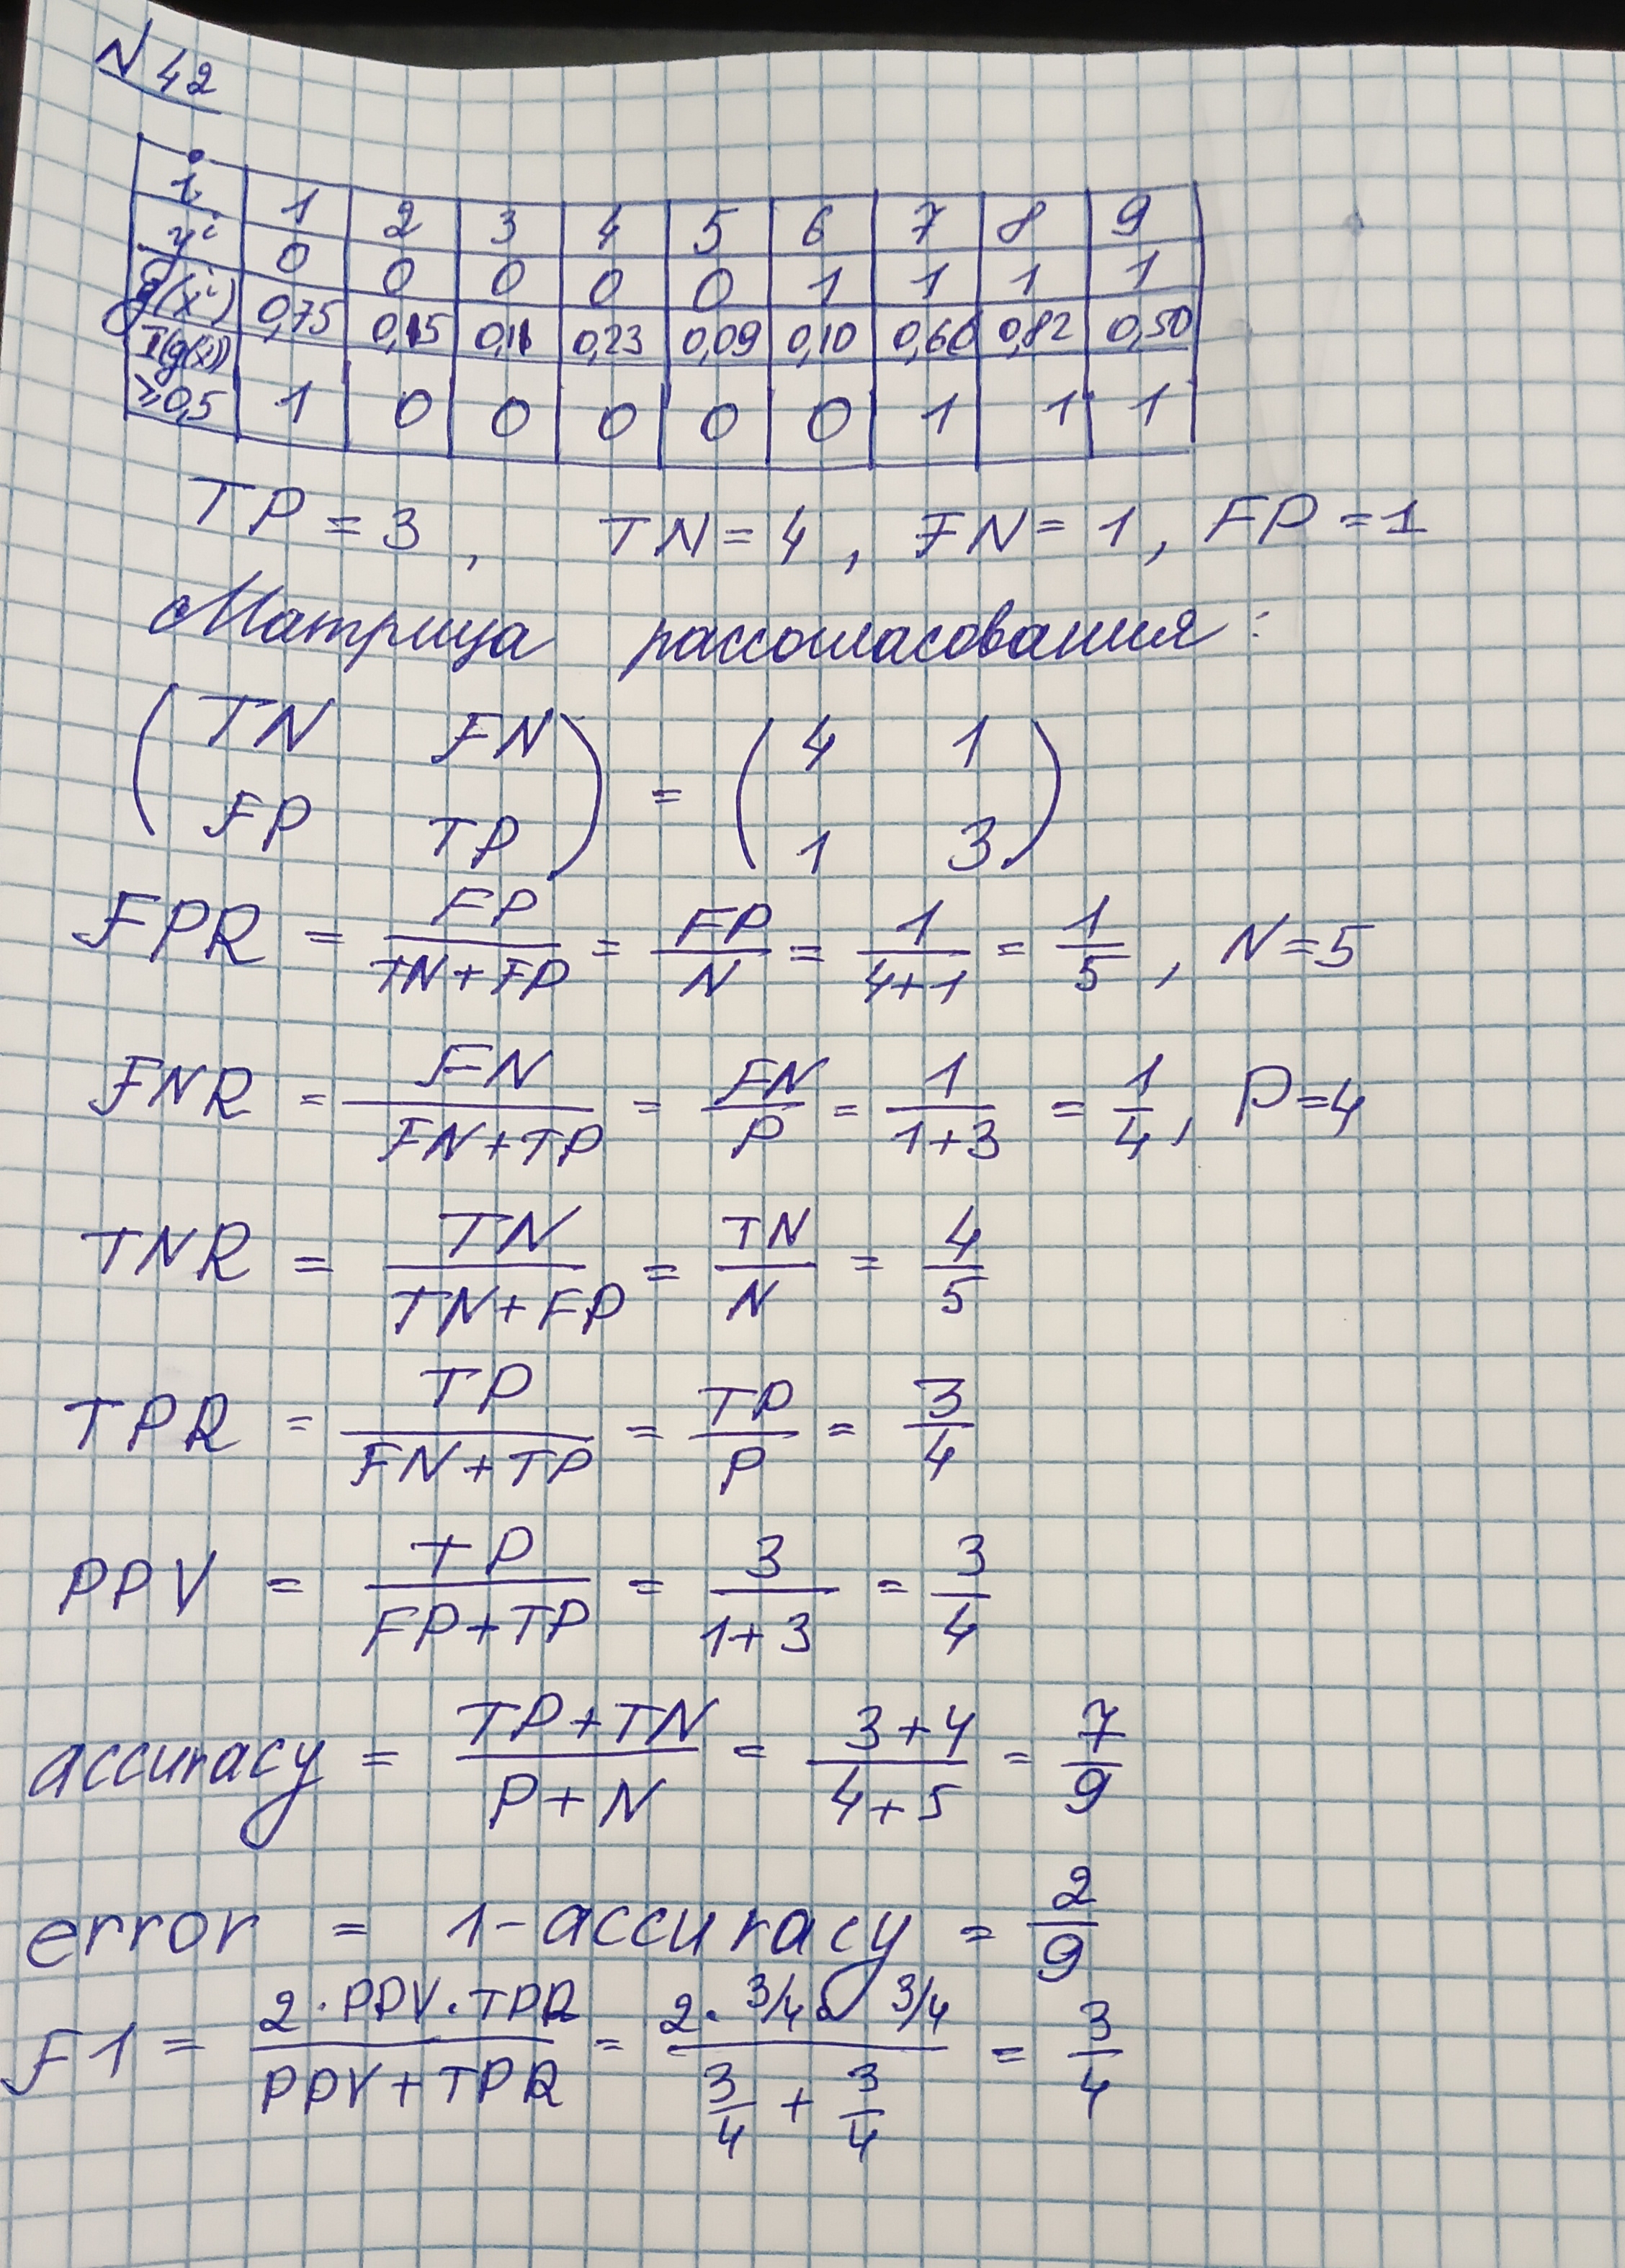 N 42
i 1 2 3 4 5 6 7 8 9
yⁱ 0 0 0 0 0 1 1 1 1
g(xⁱ) 0,75 0,15 0,11 0,23 0,09 0,10 0,60 0,82 0,50
I(g(x)) ≥0,5 1 0 0 0 0 0 1 1 1
TP = 3, TN = 4, FN = 1, FP = 1
Матрица рассогласования:
(TN FN
FP TP) = (4 1
1 3)
FPR = FP/(TN+FP) = FP/N = 1/(4+1) = 1/5, N=5
FNR = FN/(FN+TP) = FN/P = 1/(1+3) = 1/4, P=4
TNR = TN/(TN+FP) = TN/N = 4/5
TPR = TP/(FN+TP) = TP/P = 3/4
PPV = TP/(FP+TP) = 3/(1+3) = 3/4
accuracy = (TP+TN)/(P+N) = (3+4)/(4+5) = 7/9
error = 1-accuracy = 2/9
F1 = (2·PPV·TPR)/(PPV+TPR) = (2·3/4·3/4)/(3/4+3/4) = 3/4